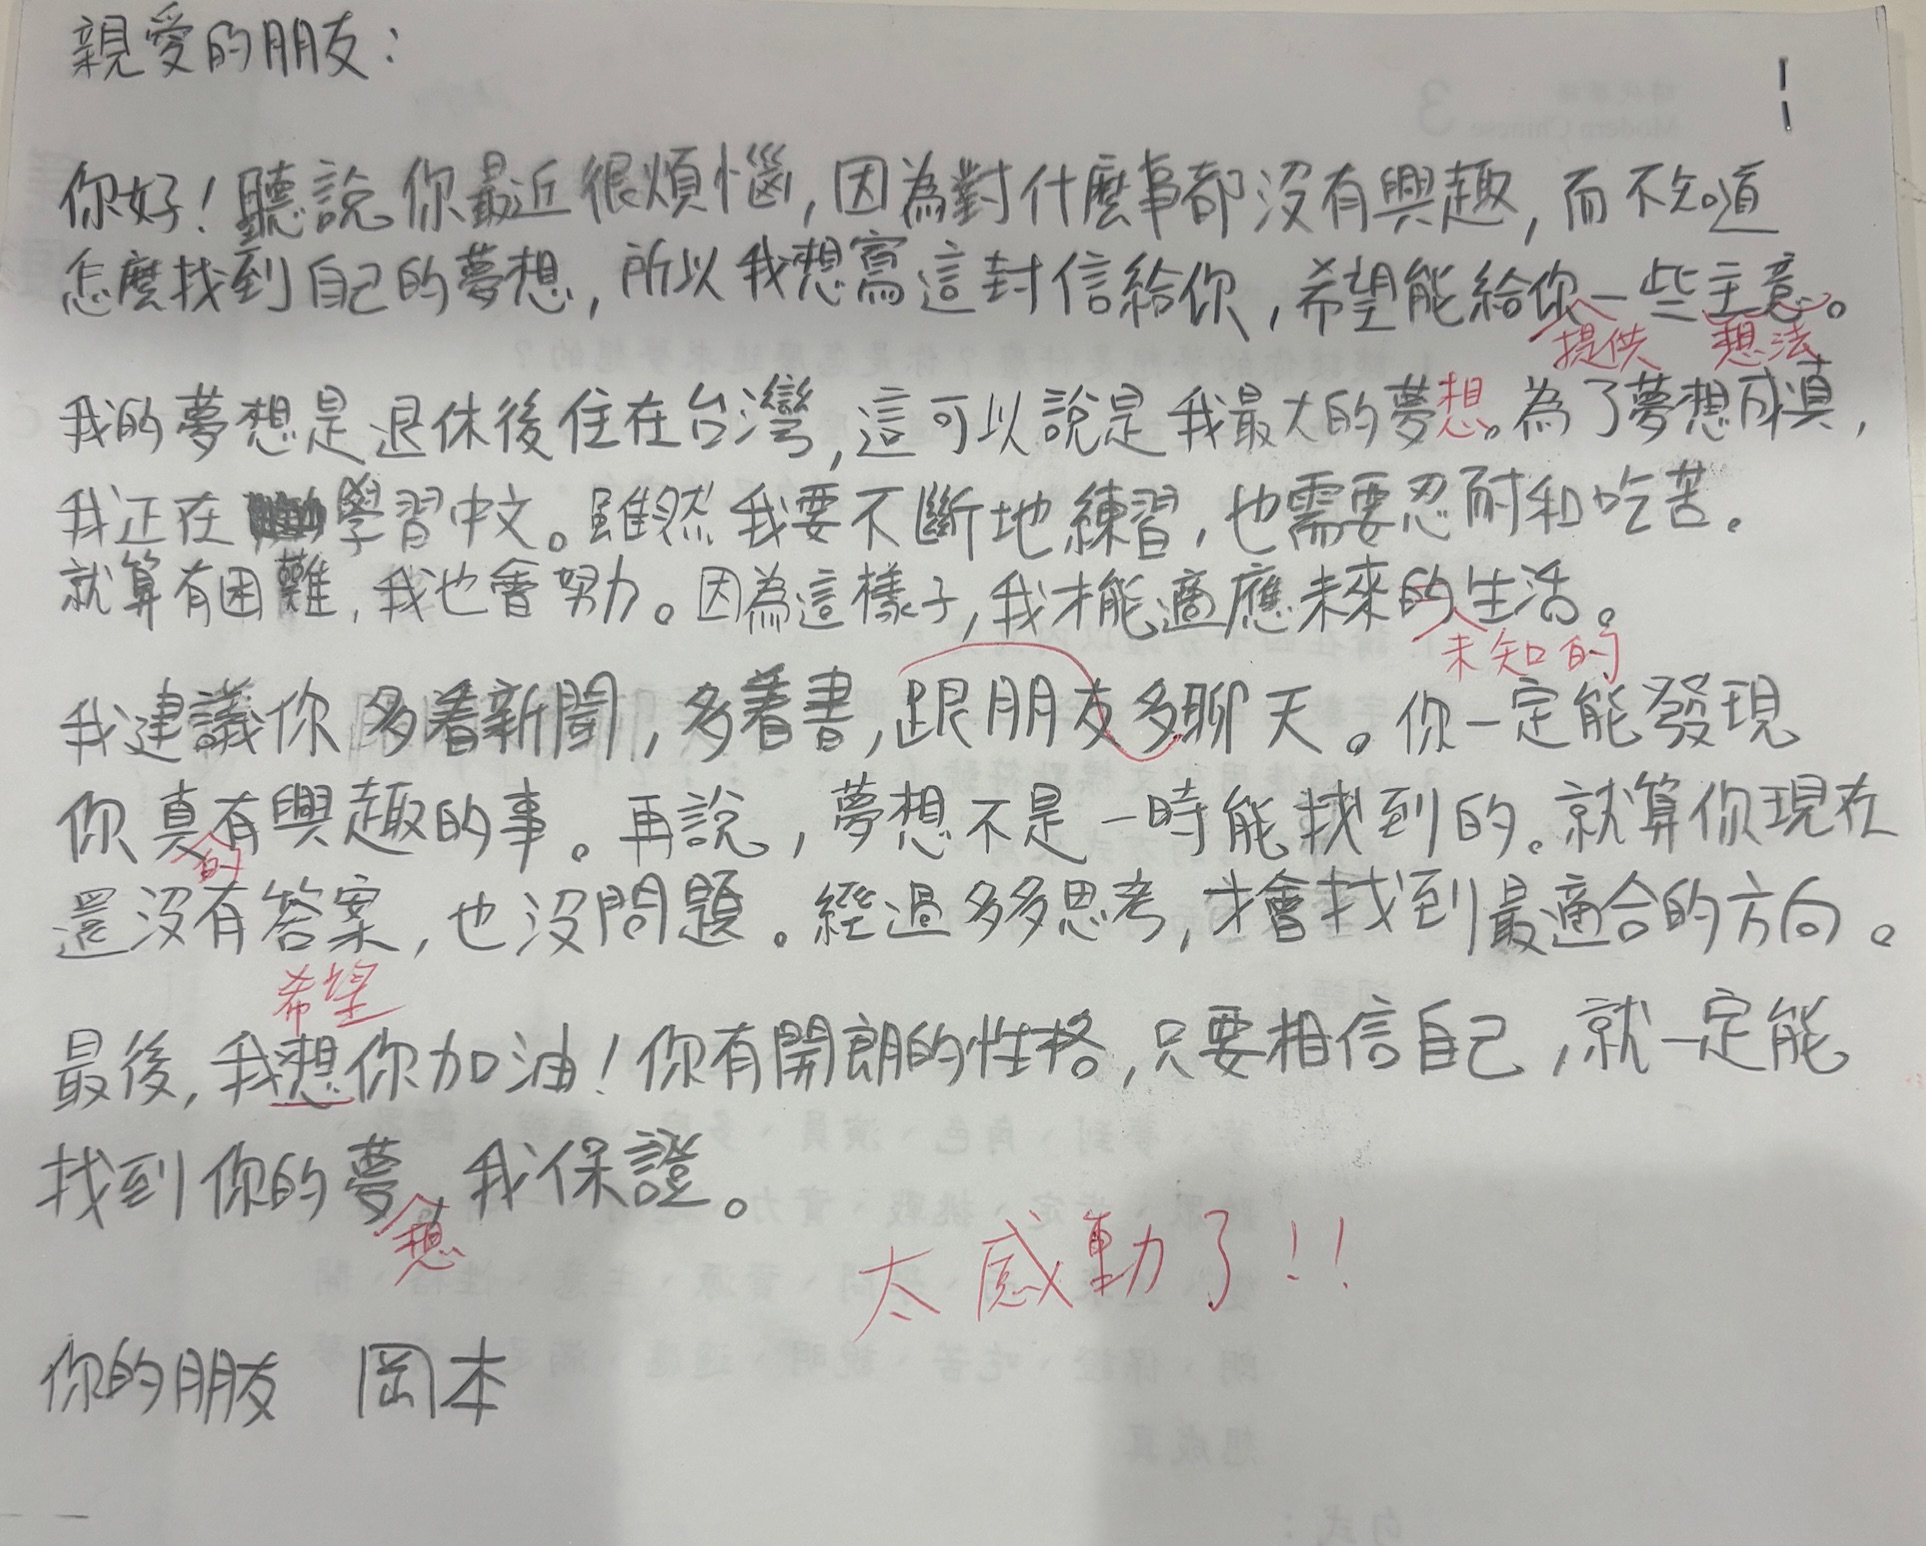 親愛的朋友：
你好！聽說你最近很煩惱，因為對什麼事都沒有興趣，而不知道
怎麼找到自己的夢想，所以我想寫這封信給你，希望能給你一些主意。
提供 想法
我的夢想是退休後住在台灣，這可以說是我最大的夢想。為了夢想成真，
我正在學習中文。雖然我要不斷地練習，也需要忍耐和吃苦。
就算有困難，我也會努力。因為這樣子，我才能適應未來的生活。
未知的
我建議你多看新聞，多看書，跟朋友多聊天。你一定能發現
你真有興趣的事。再說，夢想不是一時能找到的。就算你現在
的
還沒有答案，也沒問題。經過多多思考，才會找到最適合的方向。
希望
最後，我想你加油！你有開朗的性格，只要相信自己，就一定能
找到你的夢，我保證。
想
太感動了！！
你的朋友 岡本
3
Modern Chinese
想成真
句式：